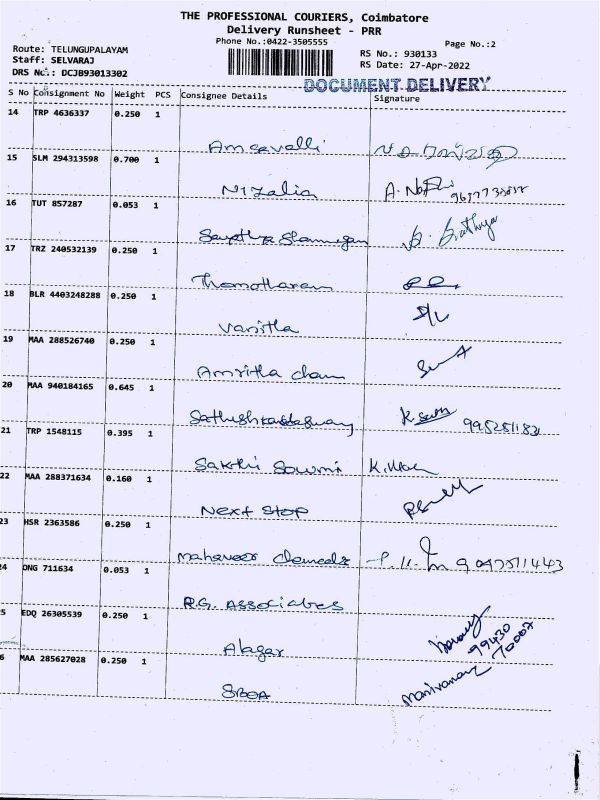 THE PROFESSIONAL COURIERS, Coimbatore
Delivery Runsheet - PRR
Phone No.:0422-3505555
Page No.:2
Route: TELUNGUPALAYAM
Staff: SELVARAJ
RS No.: 930133
DRS No.: DCJB93013302
RS Date: 27-Apr-2022
DOCUMENT DELIVERY
S No Consignment No Weight PCS Consignee Details Signature
14 TRP 4636337 0.250 1
Amsavalli
15 SLM 294313598 0.700 1
Nizalia A.
16 TUT 857287 0.053 1
Sathya
17 TRZ 240532139 0.250 1
18 BLR 4403248288 0.250 1
Vanitha
19 MAA 288526740 0.250 1
Amritha
20 MAA 940184165 0.645 1
21 TRP 1548115 0.395 1
Sakthi Sowmi
22 MAA 288371634 0.160 1
Next Stop
23 HSR 2363586 0.250 1
Mahaveer
24 ONG 711634 0.053 1
R.G. Associates
5 EDQ 26305539 0.250 1
Alagar
99430
70007
6 MAA 285627028 0.250 1
SBOA Manivannan